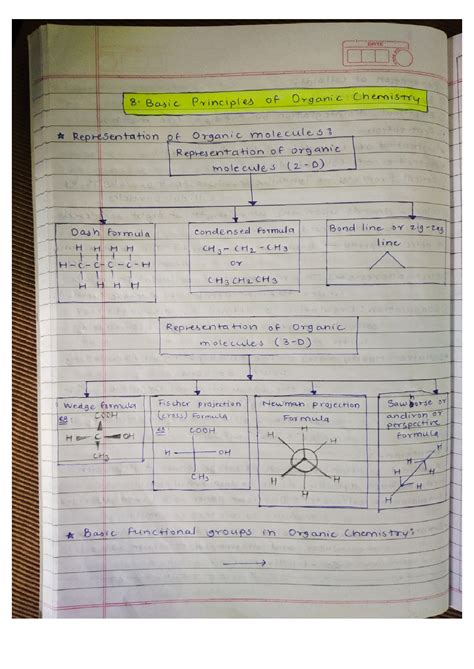 DATE
8. Basic Principles of Organic Chemistry
★ Representation of Organic molecules:
Representation of organic
molecules (2-D)
Dash formula
H H H H
H-C-C-C-C-H
H H H H
Condensed formula
CH3-CH2-CH3
or
CH3CH2CH3
Bond line or zig-zag
line
Representation of Organic
molecules (3-D)
Wedge formula
eg:
COOH
H C OH
CH3
Fischer projection
(cross) Formula
eg
COOH
H OH
CH3
Newman projection
Formula
H
H H
H H
H
Sawhorse or
andiron or
perspective
formula
H
H H
H H
H
★ Basic functional groups in Organic Chemistry:
→